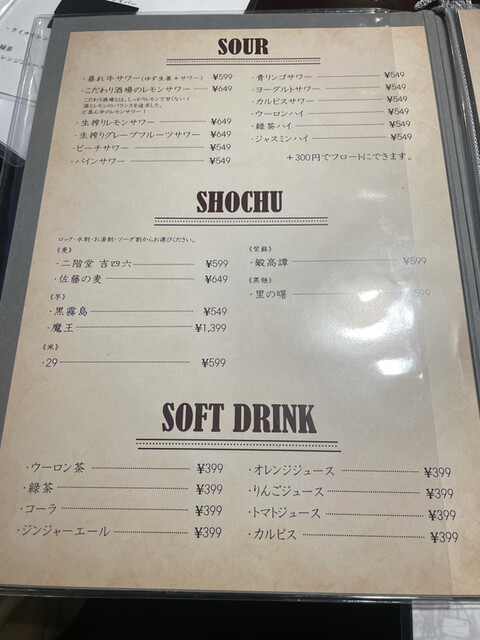 SOUR
・暴れ牛サワー(ゆず生姜+サワー) ¥599
・こだわり酒場のレモンサワー ¥649
こだわり酒場とは、しっかりレモンで甘くない!
酒とレモンのバランスを追求した、
ど真ん中のサワー!
・生搾りレモンサワー ¥649
・生搾りグレープフルーツサワー ¥649
・ピーチサワー ¥549
・パインサワー ¥549
・青リンゴサワー ¥549
・ヨーグルトサワー ¥549
・カルピスサワー ¥549
・ウーロンハイ ¥549
・緑茶ハイ ¥549
・ジャスミンハイ ¥549
+300円でフロートにできます。
SHOCHU
ロック・水割・お湯割・ソーダ割からお選びください。
《麦》
・二階堂 吉四六 ¥599
・佐藤の麦 ¥649
《芋》
・黒霧島 ¥549
・魔王 ¥1,399
《米》
・29 ¥599
《紫蘇》
・鍛高譚 ¥599
《黒糖》
・里の曙 ¥549
SOFT DRINK
・ウーロン茶 ¥399
・緑茶 ¥399
・コーラ ¥399
・ジンジャーエール ¥399
・オレンジジュース ¥399
・りんごジュース ¥399
・トマトジュース ¥399
・カルピス ¥399